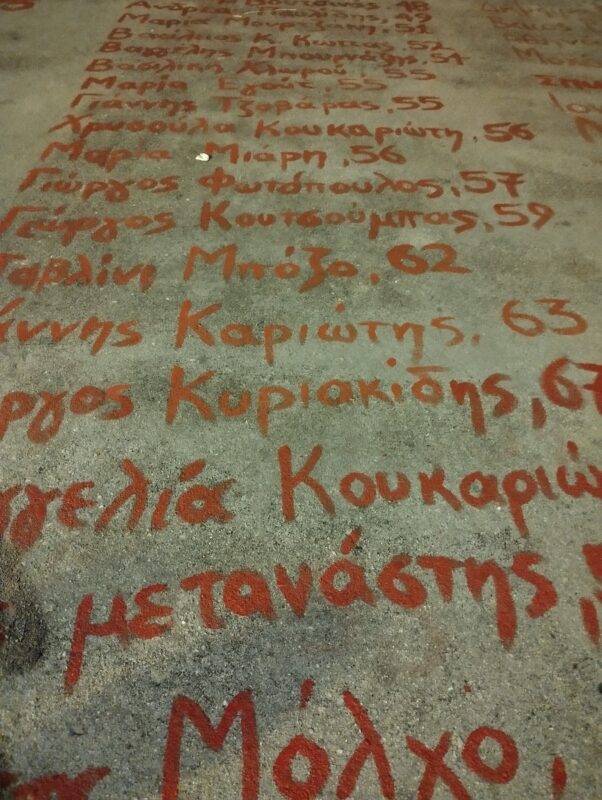 48
49
Μαρία 51
Βασίλειος Κ. Κώττας, 52
Βαγγέλης Μπουρνάζης, 54
Βασιλική 55
Μαρία Εγούτ, 55
Γιάννης Τζοβάρας, 55
Χρυσούλα Κουκαριώτη, 56
Μαρία Μιάρη, 56
Γιώργος Φωτόπουλος, 57
Γεώργος Κουτσούμπας, 59
Γαβλίνι Μπόζο, 62
άννης Καριώτης, 63
ργος Κυριακίδης, 67
γγελία Κουκαριώ
μετανάστης,
Μόλχο,